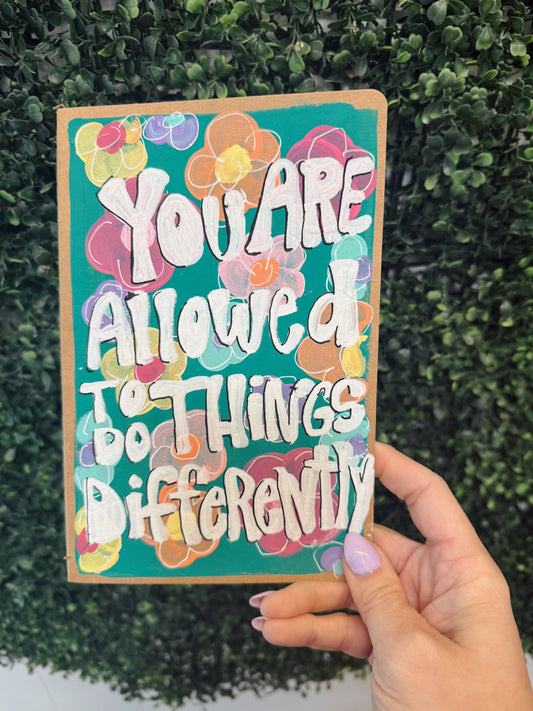 YOU ARE
Allowed
TO THINGS
DO
DiffeRENTLY